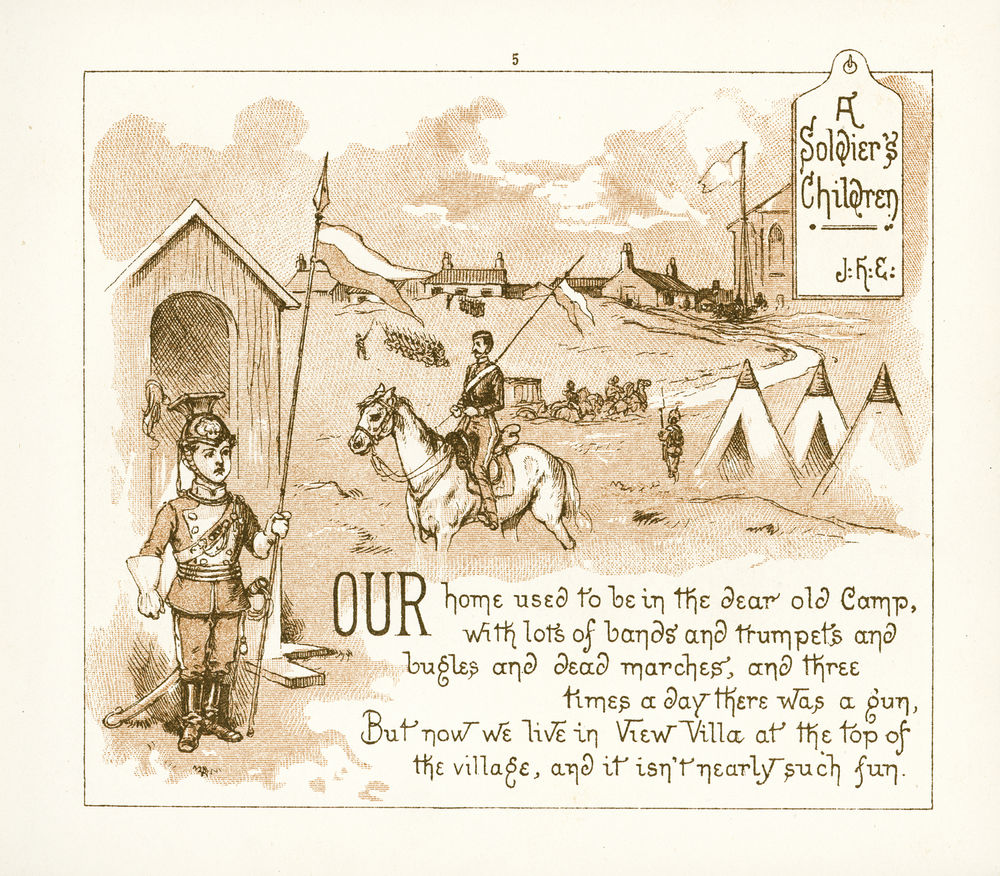 5
A
Soldier's
Children
J:H:E:
OUR home used to be in the dear old Camp,
with lots of bands and trumpets and
bugles and dead marches, and three
times a day there was a gun,
But now we live in View Villa at the top of
the village, and it isn't nearly such fun.